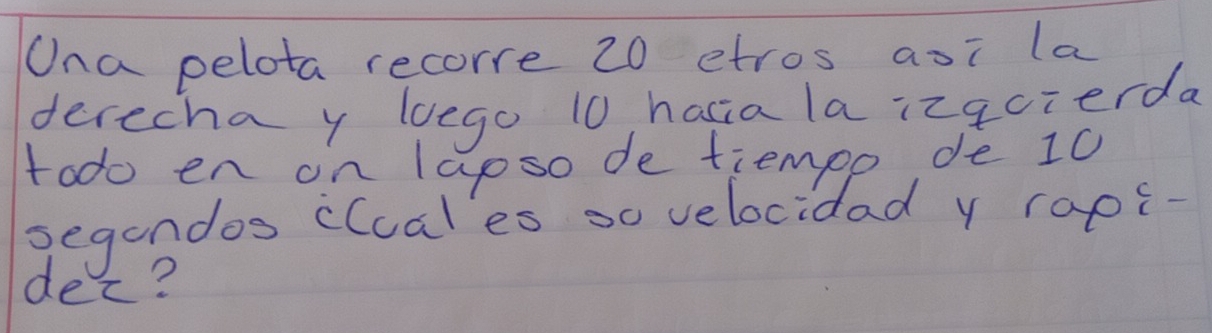 Una pelota recorre 20 etros asi la
derecha y luego 10 hacia la izquierda
todo en un lapso de tiempo de 10
segundos ¿Cual es su velocidad y rapi-
dez?